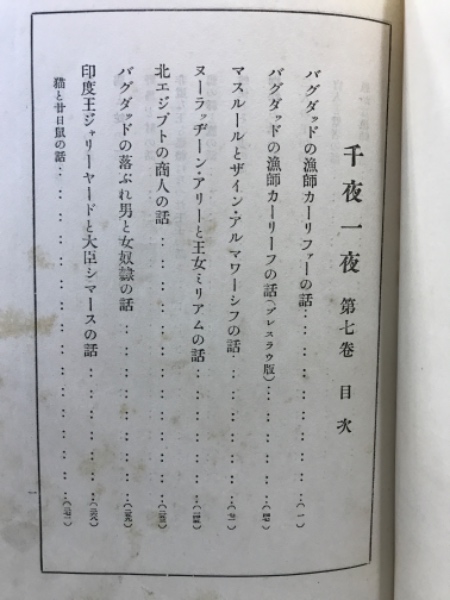 千夜一夜 第七卷 目次
バグダッドの漁師カーリファーの話
バグダッドの漁師カーリーフの話(ブレスラウ版)
マスルールとザイン・アルマワーシフの話
ヌーラッヂーン・アリーと王女ミリアムの話
北エジプトの商人の話
バグダッドの落ぶれ男と女奴隷の話
印度王ジャリーヤードと大臣シマースの話
猫と廿日鼠の話